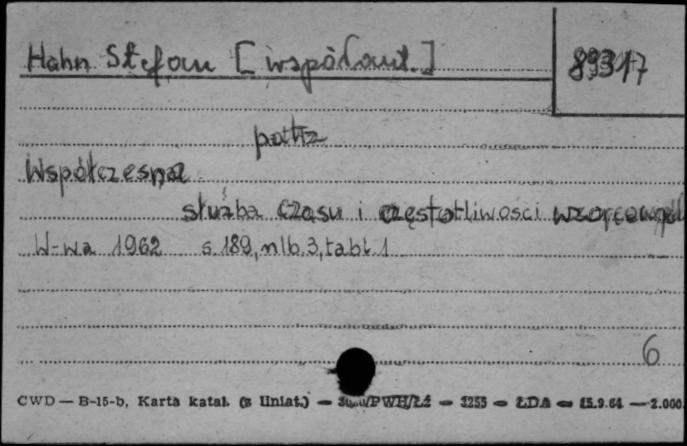 Hahn Stefan [współaut.]
89317
patrz
Współczesna
służba czasu i częstotliwości wzorcowych
W-wa 1962 s. 189, nlb. 3, tabl 1
6
CWD — B-15-b, Karta katal. (z liniat.) — /PWH/Łź — 3255 — ŁDA — 15.9.64 — 2.000